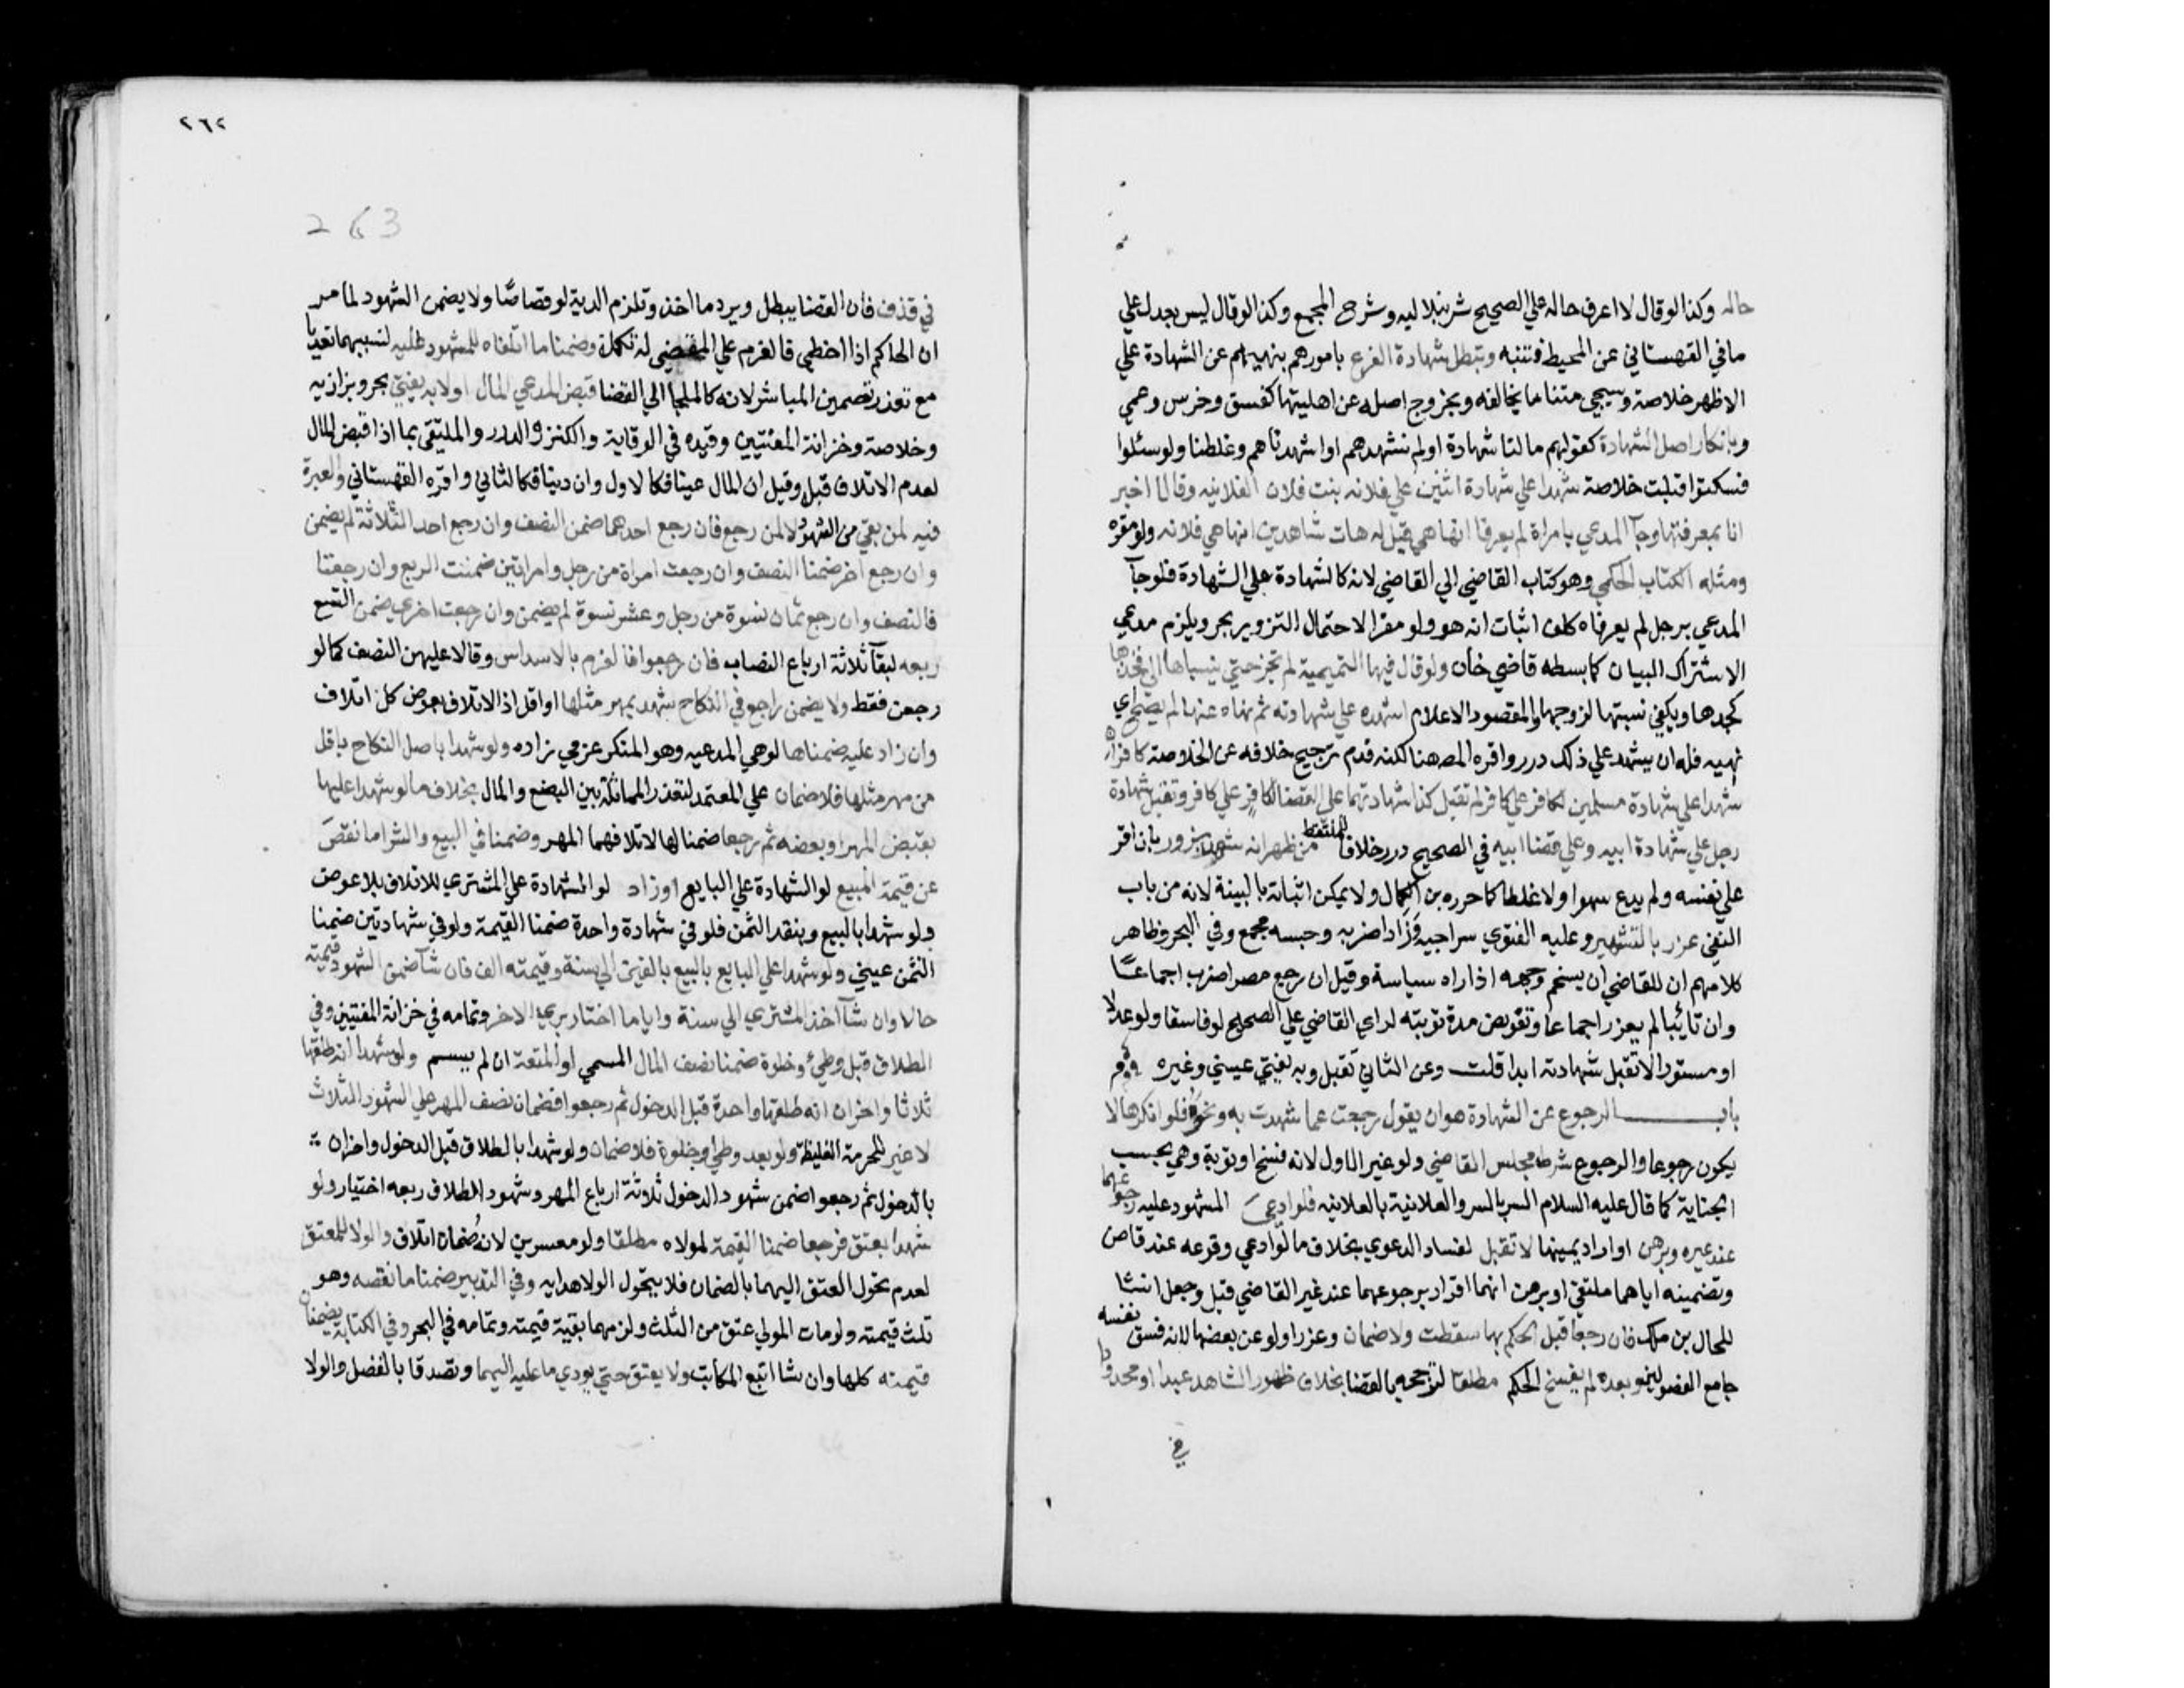 حاله وكذا لو قال لا اعرف حاله علي الصحيح شرنبلاليه وشرح المجمع وكذا لو قال ليس بعدل علي
ما في القهستاني عن المحيط فتنبه وتبطل شهادة الفرع بامورهم بنهيهم عن الشهادة علي
الاظهر خلاصة وسيجي متنا ما يخالفه وبخروج اصله عن اهليتها كفسق وخرس وعمي
وبانكار اصل الشهادة كقولهم ما لنا شهادة اولم نشهدهم او اشهدناهم وغلطنا ولو سئلوا
فسكتوا قبلت خلاصة شهدا علي شهادة اثنين علي فلانه بنت فلان الفلانيه وقالا اخبر
انا بمعرفتها وجآ المدعي بامراة لم يعرفا انها هي قيل له هات شاهدين انها هي فلانه ولو مقره
ومثله الكتاب الحكمي وهو كتاب القاضي الي القاضي لانه كالشهادة علي الشهادة فلو جآ
المدعي برجل لم يعرفاه كلف اثبات انه هو ولو مقرا لاحتمال التزوير بحر ويلزم مدعي
الاشتراك البيان كما بسطه قاضي خان ولو قال فيها التميمية لم تجز حتي ينسباها الي فخذها
كجدها ويكفي نسبتها لزوجها والمقصود الاعلام اشهده علي شهادته ثم نهاه عنها لم يصح اي
نهيه فله ان يشهد علي ذلك درر واقره المصه هنا لكنه قدم ترجيح خلافه عن الخلاصة كافران
شهدا علي شهادة مسلمين لكافر علي كافر لم تقبل كذا شهادتهما علي القضا لكافر علي كافر وتقبل شهادة
رجل علي شهادة ابيه وعلي قضا ابيه في الصحيح درر خلافا للملتقط من ظهر انه شهد بزور بان اقر
علي نفسه ولم يدع سهوا ولا غلطا كما حرره بن الكمال ولا يمكن اثباته بالبينة لانه من باب
النفي عزر بالتشهير وعليه الفتوي سراجيه وزادا ضربه وحبسه مجمع وفي البحر وظاهر
كلامهم ان للقاضي ان يسخم وجهه اذا راه سياسة وقيل ان رجع مصرا ضرب اجماعا
وان تائبا لم يعزر اجماعا وتفويض مدة توبته لراي القاضي علي الصحيح لو فاسقا ولو عدلا
او مستورا لا تقبل شهادته ابدا قلت وعن الثاني تقبل وبه يفتي عيني وغيره
باب الرجوع عن الشهادة هو ان يقول رجعت عما شهدت به ونحوه فلو انكرها لا
يكون رجوعا والرجوع شرطه مجلس القاضي ولو غير الاول لانه فسخ او توبة وهي بحسب
الجناية كما قال عليه السلام السر بالسر والعلانية بالعلانيه فلو ادعي المشهود عليه رجوعهما
عند غيره وبرهن او اراد يمينها لا تقبل لفساد الدعوي بخلاف ما لو ادعي وقوعه عند قاض
وتضمينه اياهما ملتقي او برهن انهما اقرا برجوعهما عند غير القاضي قبل وجعل انشا
للحال بن ملك فان رجعا قبل الحكم بها سقطت ولا ضمان وعزرا ولو عن بعضها لانه فسق نفسه
جامع الفصولين وبعده لم يفسخ الحكم مطلقا لترجحه بالقضا بخلاف ظهور الشاهد عبدا او محدودا
في
٢٦٢
263
في قذف فان القضا يبطل ويرد ما اخذ وتلزم الدية لو قصاصا ولا يضمن الشهود لما مر
ان الحاكم اذا اخطي فالغرم علي المقضي له وضمنا ما اتلفاه للمشهود عليه لتسببهما تعديا
مع تعذر تضمين المباشر لانه كالملجا الي القضا قبض المدعي المال او لا به يفتي بحر وبزازيه
وخلاصة وخزانة المفتيين وقيده في الوقاية والكنز والدرر والملتقي بما اذا قبض المال
لعدم الاتلاف قبل وقيل ان المال عينا فكالاول وان دينا فكالثاني واقره القهستاني والعبرة
فيه لمن بقي من الشهود لا لمن رجع فان رجع احدهما ضمن النصف وان رجع احد الثلاثة لم يضمن
وان رجع اخر ضمنا النصف وان رجعت امراة من رجل وامراتين ضمنت الربع وان رجعتا
فالنصف وان رجع ثمان نسوة من رجل وعشر نسوة لم يضمن وان رجعت اخري ضمن التسع
ربعه لبقآ ثلاثة ارباع النصاب فان رجعوا فالغرم بالاسداس وقالا عليهن النصف كما لو
رجعن فقط ولا يضمن راجع في النكاح شهد بمهر مثلها او اقل اذ الاتلاف بعوض كلا اتلاف
وان زاد عليه ضمناها لو هي المدعيه وهو المنكر عزمي زاده ولو شهدا باصل النكاح باقل
من مهر مثلها فلا ضمان علي المعتمد لتعذر المماثلة بين البضع والمال بخلاف ما لو شهدا عليها
بقبض المهر او بعضه ثم رجعا ضمنا لها لاتلافهما المهر وضمنا في البيع والشرا ما نقص
عن قيمة المبيع لو الشهادة علي البايع او زاد لو الشهادة علي المشتري للاتلاف بلا عوض
ولو شهدا بالبيع وبنقد الثمن فلو في شهادة واحدة ضمنا القيمة ولو في شهادتين ضمنا
الثمن عيني ولو شهدا علي البايع بالبيع بالفين الي سنة وقيمته الف فان شآ ضمن الشهود قيمته
حالا وان شآ اخذ المشتري الي سنة وايا ما اختار بري الاخر وتمامه في خزانة المفتيين وفي
الطلاق قبل وطئ وخلوة ضمنا نصف المال المسمي او المتعة ان لم يسم ولو شهدا انه طلقها
ثلاثا واخران انه طلقها واحدة قبل الدخول ثم رجعوا فضمان نصف المهر علي الشهود الثلاث
لا غير للحرمة الغليظة ولو بعد وطي او خلوة فلا ضمان ولو شهدا بالطلاق قبل الدخول واخران
بالدخول ثم رجعوا ضمن شهود الدخول ثلاثة ارباع المهر وشهود الطلاق ربعه اختيار ولو
شهدا بعتق فرجعا ضمنا القيمة لمولاه مطلقا ولو معسرين لانه ضمان اتلاف والولا للمعتق
لعدم تحول العتق اليهما بالضمان فلا يتحول الولا هدايه وفي التدبير ضمنا ما نقصه وهو
ثلث قيمته ولو مات المولي عتق من الثلث ولزمهما بقية قيمته وتمامه في البحر وفي الكتابة يضمنان
قيمته كلها وان شا اتبع المكاتب ولا يعتق حتي يودي ما عليه اليهما وتصدقا بالفضل والولا